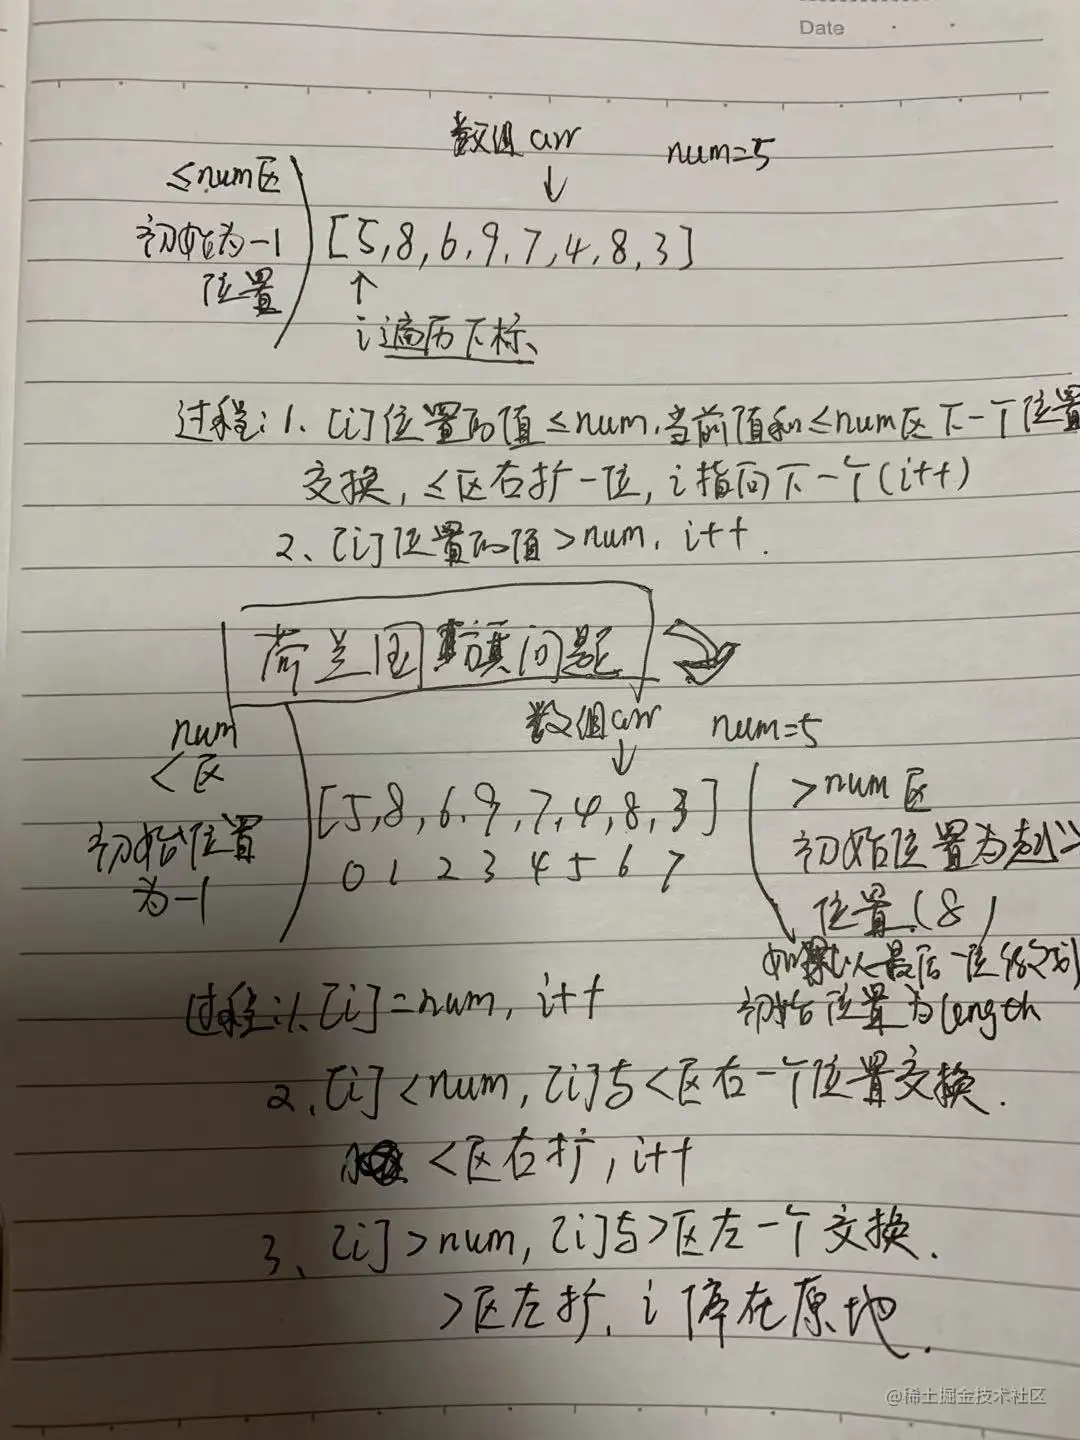 Date
数组arr num=5
≤num区
初始为-1
位置
[5,8,6,9,7,4,8,3]
i遍历下标
过程:1、[i]位置的值≤num,当前值和≤num区下一个位置
交换,≤区右扩一位,i指向下一个(i++)
2、[i]位置的值>num, i++.
荷兰国旗问题
数组arr num=5
num
<区
初始位置
为-1
[5,8,6,9,7,4,8,3]
0 1 2 3 4 5 6 7
>num区
初始位置为
位置(8)
如果以最后一位
初始位置为length
过程:1、[i]=num, i++
2、[i]<num, [i]与<区右一个位置交换.
<区右扩, i++
3、[i]>num, [i]与>区左一个交换.
>区左扩, i停在原地.
@稀土掘金技术社区